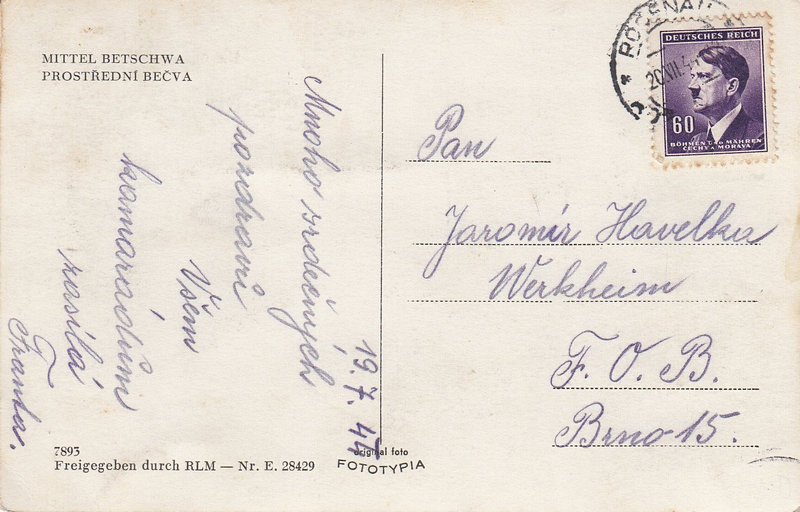 MITTEL BETSCHWA
PROSTŘEDNÍ BEČVA
Mnoho srdečných
pozdravů
Všem
kamarádům
zasílá
Franta.
19.7.44
7893
Freigegeben durch RLM — Nr. E. 28429
original foto
FOTOTYPIA
DEUTSCHES REICH
60
BÖHMEN U. MÄHREN
ČECHY A MORAVA
20.VII.4
Pan
Jaromír Havelka
Werkheim
F. O. B.
Brno 15.